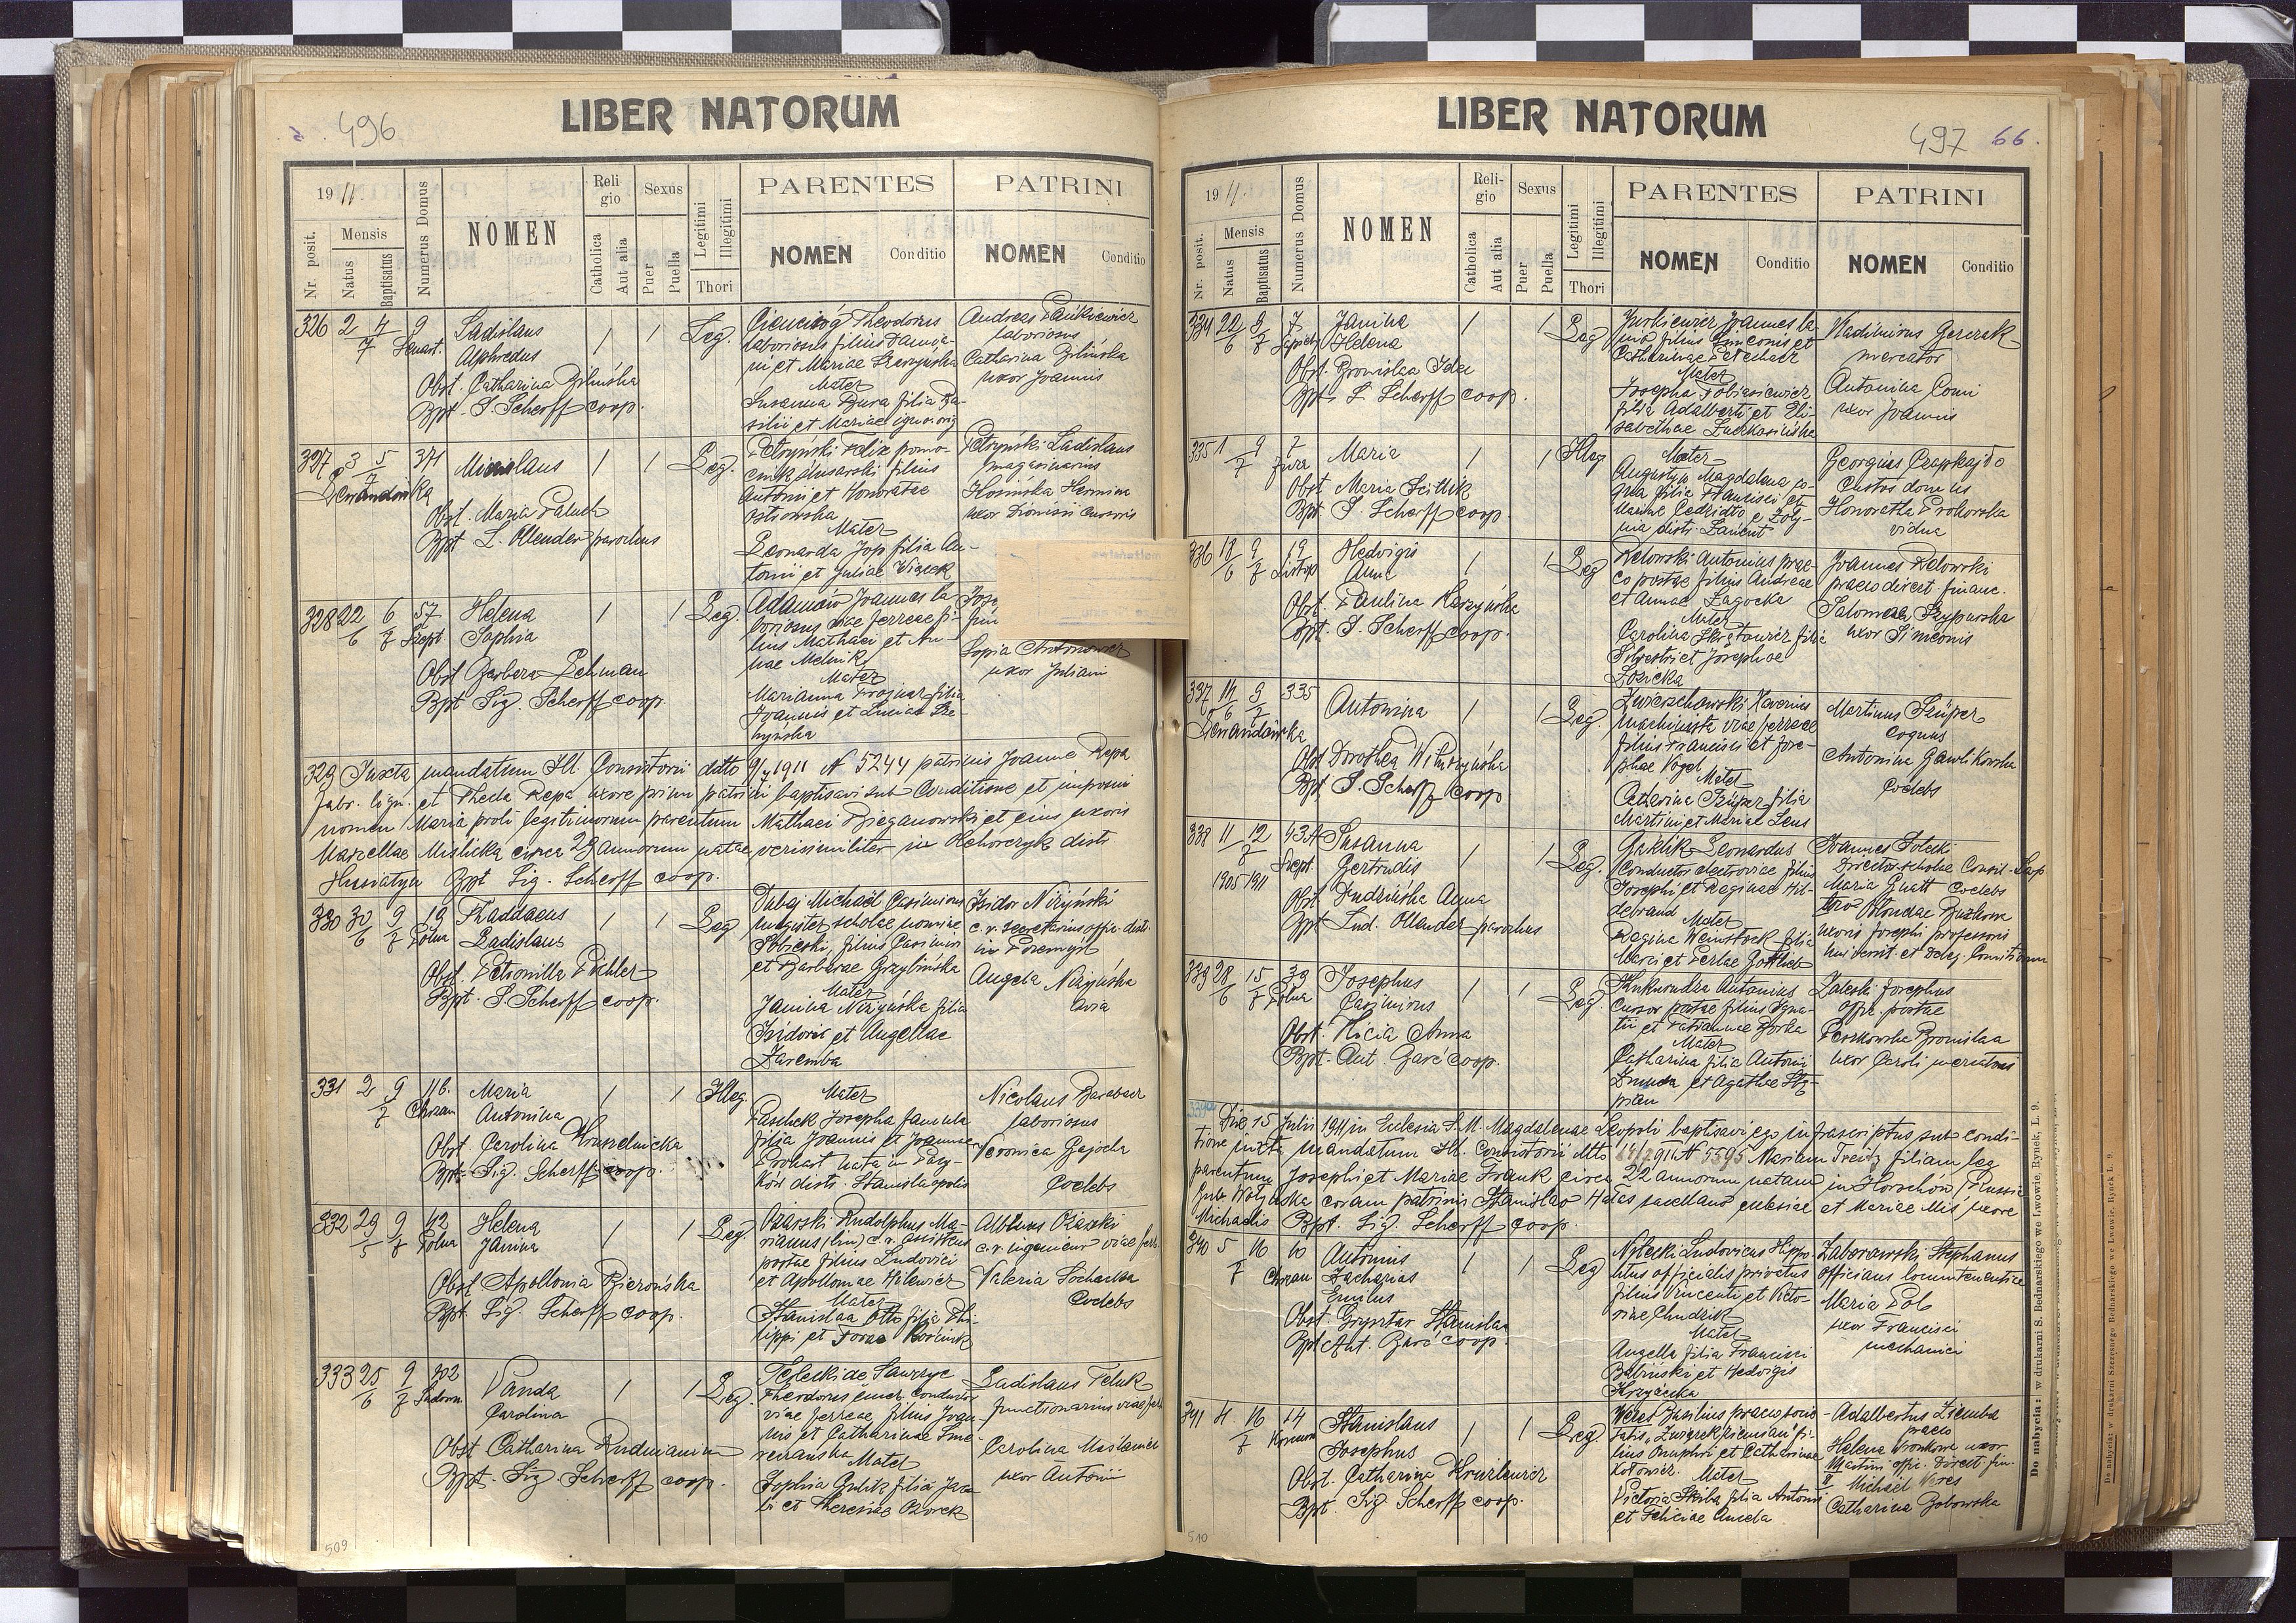 496
LIBER NATORUM
1911.
Mensis
Nr. posit.
Natus
Baptisatus
Numerus Domus
NOMEN
Religio
Catholica
Aut alia
Sexus
Puer
Puella
Legitimi
Illegitimi
Thori
PARENTES
NOMEN Conditio
PATRINI
NOMEN Conditio
326 2 4/7 9
Ladislaus
Alphredus
Obst. Catharina Bilińska
Bpt. S. Scherff coop.
1 1 Leg.
Theodorus
laboriosus filius
et Mariae
Mater
Susanna Bura filia Ba-
silii et Mariae
Andreas Pańkiewicz
laboriosus
Catharina Bilińska
uxor Joannis
327 3 5/7 371
Lewandówka
Obst. Maria Paluch
Bpt. L. Ollender parochus
1 1 Leg.
Petryński Felix pomo-
cnik ślusarski filius
Antonii et Honoratae
Ostrowska
Mater
Leonarda Jop filia An-
tonii et Juliae Wiącek
Petryński Ladislaus
magasinarius
Hermina
uxor Dionisii
328 22/6 6/7 57
Szept.
Helena
Sophia
Obst Barbara Lehman
Bpt Sig. Scherff coop.
1 1 Leg.
Adamców Joannes la-
boriosus viae ferreae fi-
lius Mathaei et An-
nae Melnik
Mater
Marianna Trojnar filia
Joannis et Luciae
Sopia Antonowicz
uxor Juliani
329 Juxta mandatum Ill. Consistorii ddto 1911 N 5244 patrinis Joanne Repa
fabr. lign. et Thecla Repa uxore primi patrini baptisavi sub Conditione et imposui
nomen Maria proli legitimorum parentum Mathaei Bieganowski et ejus uxoris
Marcellae Mislicka circa 28 annorum natae verisimiliter in Uchorczyk distr
Husiatyn Bpt Sig. Scherff coop.
330 30/6 9/7 19
Polna
Thaddaeus
Ladislaus
Obst. Petronilla Pichler
Bpt. S Scherff coop.
1 1 Leg
Dubaj Michaël Casimirus
magister scholae nomine
Sobieski, filius Casimiri
et Barbarae Grzybińska
Mater
Janina Niżyńska filia
Isidori et Angellae
Zaremba
Isidor Niżyński
c. r. secretarius offic. distr.
in Przemyśl
Angela Niżyńska
avia
331 2 9/7 116.
Chrzan
Maria
Antonina
Obst Carolina Kruszelnicka
Bpt. Sig. Scherff coop.
1 1 Illeg.
Mater
Paschek Josepha famula
filia Joannis et Joannae
Prohart nata in
distr. Stanislaopolis
Nicolaus Barabasz
laboriosus
Veronica Gajocha
Coelebs
332 29/5 9/7 42
Polna
Helena
Janina
Obst Apollonia Bierońska
Bpt. Sig. Scherff coop.
1 1 Leg.
Ożarski Rudolphus Ma-
rianus (bin) c. r. assistens
postae filius Ludovici
et Apolloniae Hilewicz
Mater
Stanislaa Otto filia Phi-
lippi et
Albinus Ożarski
c. r. ingenieur viae ferr.
Valeria Sochacka
Coelebs
333 25/6 9/7 202
Vanda
Carolina
Obst Catharina Rudmianin
Bpt. Sig. Scherff coop.
1 1 Leg.
Teleckide Sawrzyc
Theodorus emer. conductor
viae ferreae filius Joan-
nis et Catharinae
Mater
Sophia Gulitz filia Jaco-
bi et Theresiae Ożorek
Ladislaus Teluk
functionarius viae ferr
Carolina
uxor Antonii
509
LIBER NATORUM
497 66.
1911.
Mensis
Nr. posit.
Natus
Baptisatus
Numerus Domus
NOMEN
Religio
Catholica
Aut alia
Sexus
Puer
Puella
Legitimi
Illegitimi
Thori
PARENTES
NOMEN Conditio
PATRINI
NOMEN Conditio
334 22/6 8/7 7
Janina
Helena
Obst. Bronislaa Idec
Bpt. S. Scherff coop.
1 1 Leg
Jurkiewicz Joannes
filius Simeonis et
Catharinae
Mater
Josepha Tobiasiewicz
filia Adalberti et Eli-
sabethae
Vladimirus Garczak
mercator
Antonina Comi
uxor Joannis
335 1/7 9 7
Jura
Maria
Obst Maria
Bpt. S. Scherff coop.
1 1 Illeg
Mater
Augustyn Magdalena co-
qua filia Francisci et
Mariae e Żoły-
nia distr. Łańcut
Georgius Czapkajło
Custos domus
Honoratha Prohorska
vidua
336 18/6 9/7 19
Listop
Hedvigis
Anna
Obst. Paulina Raszyńska
Bpt. S. Scherff coop.
1 1 Leg
Relowski Antonius prae-
co postae filius Andreae
et Annae Zagocka
Mater
Carolina filia
Silvestri et Josephae
Łozicka
Joannes Relowski
praeco direct financ.
Salomea Szypurska
uxor Simeonis
337 9/7 335
Lewandówka
Antonina
Obst Dorothea
Bpt S. Scherff coop
1 1 Leg.
Zwierzchowski Xaverius
machinista viae ferreae
filius Francisci et Jose-
phae Vogel
Mater
Catharina Szuper filia
Martini et Mariae Lens
Martinus Szuper
coquus
Antonina Gawlikowska
Coelebs
338 11 12/7 43A
Szept.
1905 1911
Susanna
Gertrudis
Obst. Dudzińska Anna
Bpt Lud. Ollender parochus
1 1 Leg.
Gaklik Leonardus
Conductor electroviae filius
Josephi et Reginae Hil-
debrand
Mater
Regina Weinstock filia
Marci et Perlae Gottlieb
Joannes Solecki
Director scholae
Maria Gnatt Coelebs
uxoris Josephi professoris
universit. et
339 28/6 15/7 39
Polna
Josephus
Casimirus
Obst. Hicia Anna
Bpt. Ant. Garć coop.
1 1 Leg
Kukurudza Antonius
Cursor postae filius Igna-
tii et Marianna Borka
Mater
Catharina filia Antonii
et Agathae
Zaleski Josephus
offic. postae
Bronislaa
uxor Caroli
339a
Die 15 Julii 1911 in Eclesia S. M. Magdalenae Leopoli baptisavi ego infrascriptus sub condi-
tione juxta mandatum Ill. Consistorii ddto N 5595 Mariam Treitz filiam leg
parentum Josephi et Mariae Frank circa 22 annorum natam in Horochów (Russia
coram patrinis Stanislao Hałas sacellano eclesiae et Mariae Miś, uxore
Michaelis Bpt. Sig. Scherff coop.
340 5/7 16 10
Chrzan
Antonius
Zacharias
Emilus
Obst. Grysztar Stanislaa
Bpt Ant. Garć coop.
1 1 Leg
Notecki Ludovicus Hippo-
litus officialis privatus
filius Vincenti et Victo-
riae Chudzik
Mater
Angella filia Francisci
Babiński et Hedvigis
Zaborowski Stephanus
officians locumtenentiae
Maria Pol
uxor Francisci
mechanici
341 4/7 16 14
Stanislaus
Josephus
Obst. Catharina
Bpt. Sig Scherff coop.
1 1 Leg.
Weres Basilius praeco socie-
tatis
lius Onuphrii et Catharinae
Mater
Victoria Skiba filia Antonii
et Feliciae
Adalbertus Ziemba
praeco
Helena Wronkowa uxor
Martini offic. direct. fin.
II
Michaël Weres
Catharina
510
Do nabycia: w drukarni S. Bednarskiego we Lwowie, Rynek, L. 9.
Do nabycia: w drukarni Szczęsnego Bednarskiego we Lwowie, Rynek L. 9.